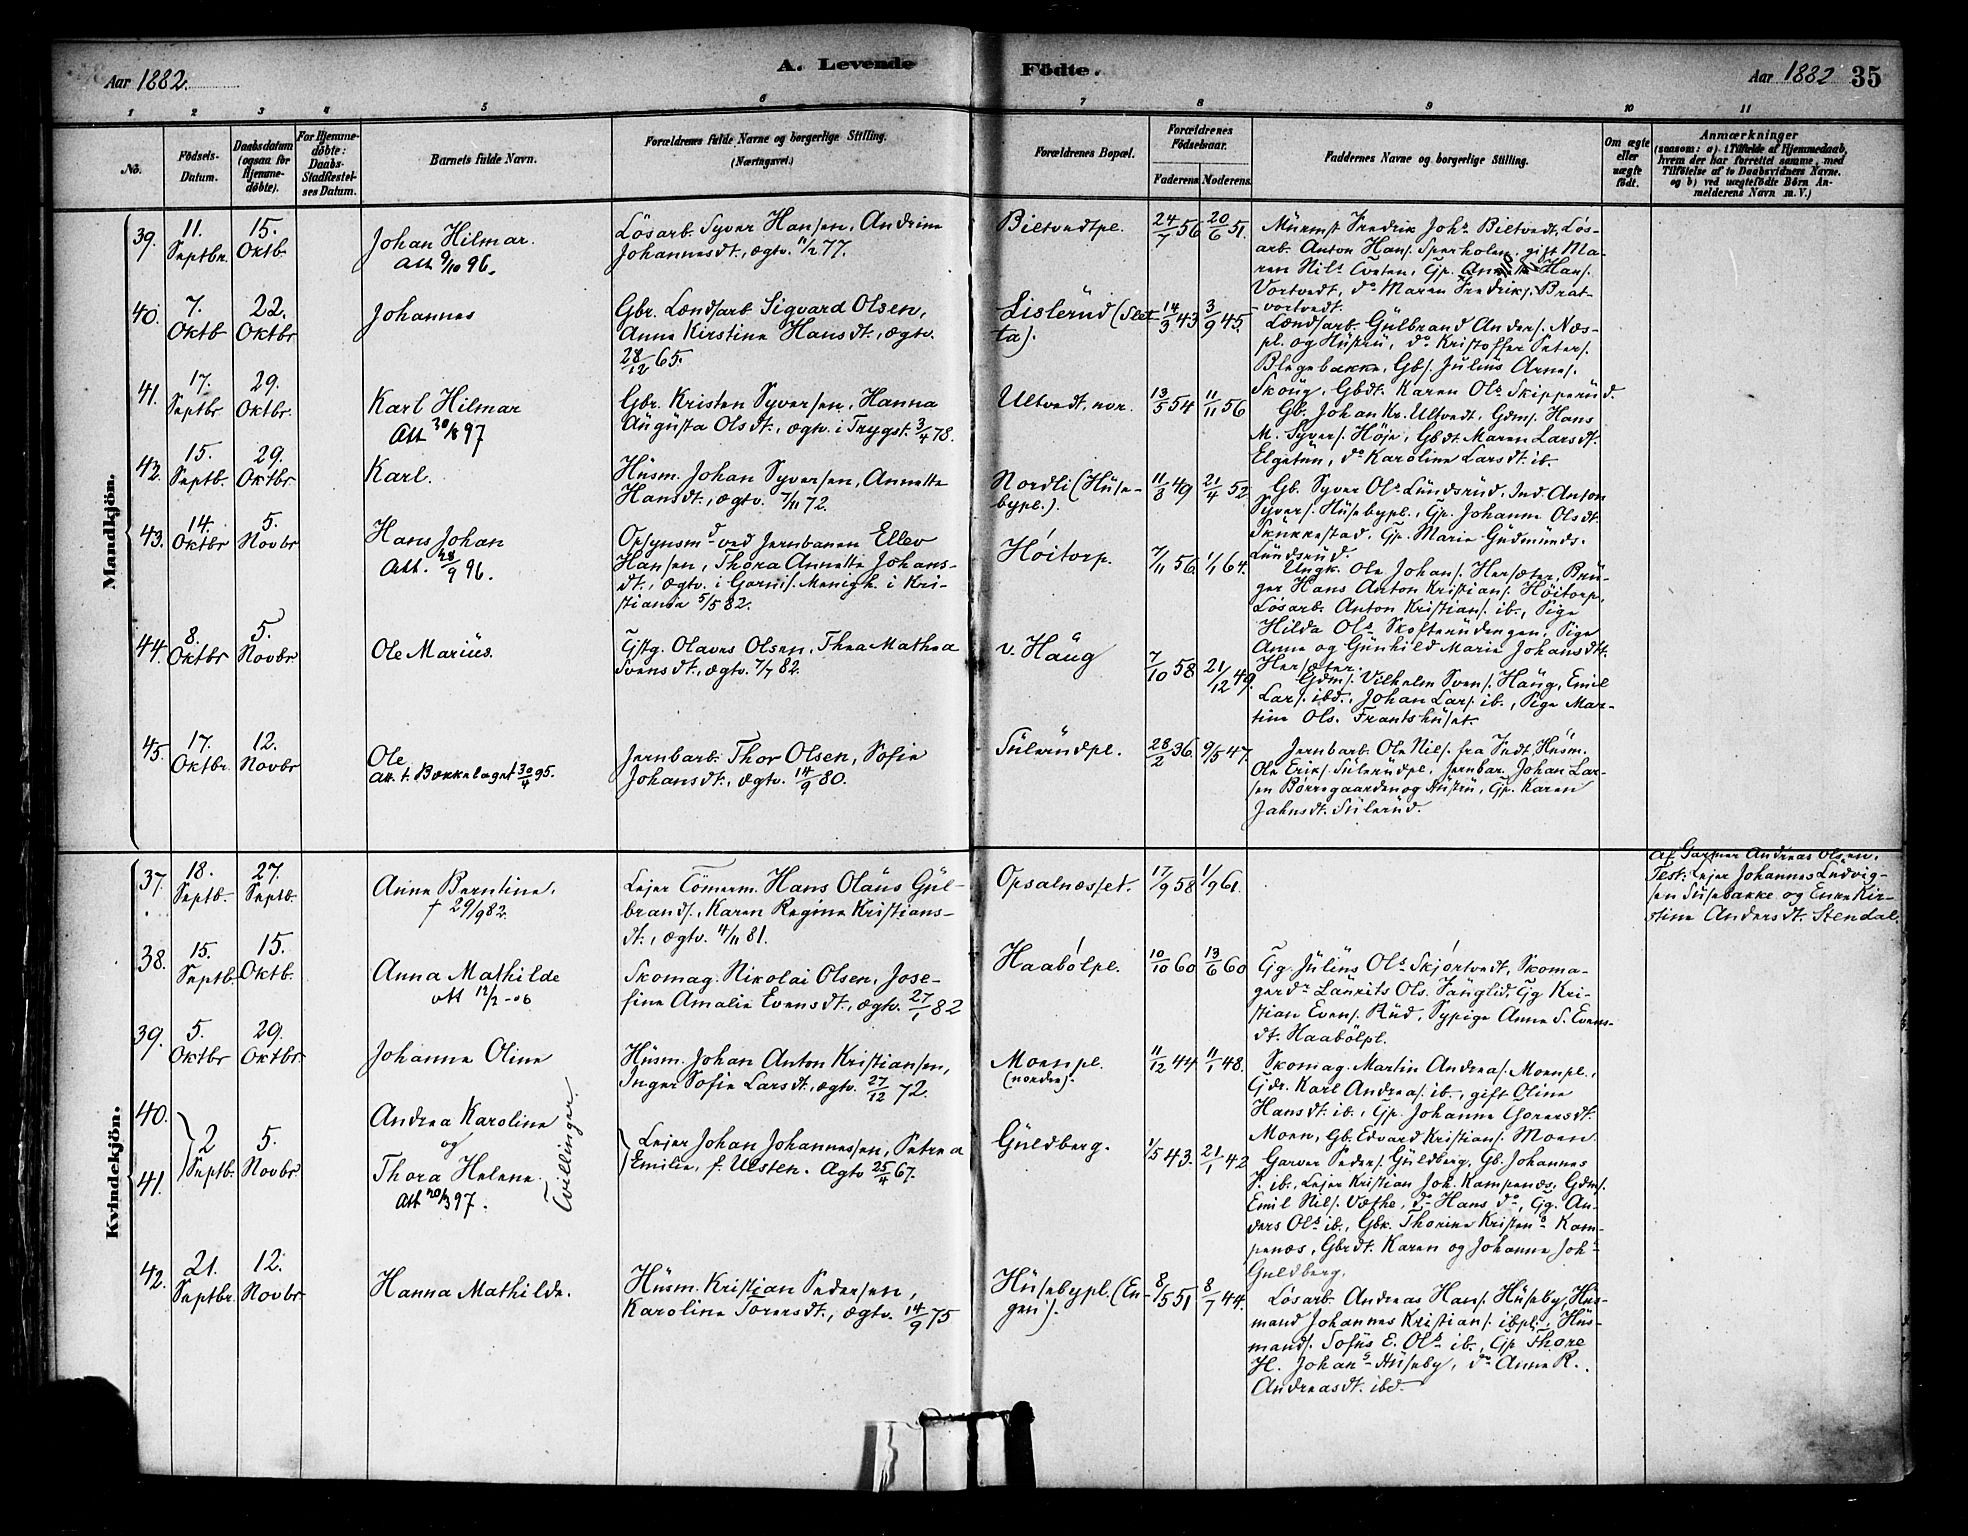 Aar 1882.
A. Levende Födte.
Aar 1882 35
1 2 3 4 5 6 7 8 9 10 11
No.
Födsels-
Datum.
Daabsdatum
(ogsaa for
Hjemme-
döbte).
For Hjemme-
döbte:
Daabs-
Stadfæstel-
ses Datum.
Barnets fulde Navn.
Forældrenes fulde Navne og borgerlige Stilling.
(Næringsvei.)
Forældrenes Bopæl.
Forældrenes
Födselsaar.
Faderens. Moderens.
Faddernes Navne og borgerlige Stilling.
Om ægte
eller
uægte
födt.
Anmærkninger
(saasom: a). i Tilfælde af Hjemmedaab,
hvem der har forrettet samme, med
Tilföielse af to Daabsvidners Navne.
og b) ved uægtefödte Börn An-
melderens Navn m. V.)
Mandkjön.
39. 11. Septbr. 15. Oktb.
Johan Hilmar.
Att 9/10 96.
Lösarb. Syver Hansen, Andrine
Johannesdt., ægtv. 11/2 77.
Bieltvedtpl.
24/7 56 20/6 51.
Murmst Fredrik Johs Bieltvedt, Lös-
arb. Anton Hans. Sperholen, gift Ma-
ren Nils. Tveten, Gp. Hans.
Vortvedt, do Maren Fredriks. Brat-
vortvedt.
40. 7. Oktb 22. Oktbr
Johannes
Gbr. Lændsarb Sigvard Olsen,
Anne Kirstine Hansdt., ægtv.
28/12 65.
Lislerud (Slet-
ta).
14/3 43 3/9 45.
Lændsarb. Gulbrand Anders. Næs-
pl. og Hustru, do Kristoffer Peters.
Blegebakke, Gbs. Julius Arnes.
Skoug, Gbdt. Karen Ols. Skipperud.
41. 17. Septbr 29. Oktbr.
Karl Hilmar
Att 30/8 97
Gbr. Kristen Syversen, Hanna
Augusta Olsdt., ægtv. i Trygst. 3/4 78.
Ultvedt, nor.
13/5 54 11/11 56
Gb. Johan Kr. Ultvedt, Gdms. Hans
M. Syvers. Höje, Gbdt. Maren Larsdt.
Elgetun, do Karoline Larsdt. ib.
42. 15. Septb. 29. Oktbr
Karl.
Husm. Johan Syversen, Annette
Hansdt., ægtv. 7/11 72.
Nordli (Huse-
bypl.).
11/3 49 21/4 52
Gb. Syver Ols Lundsrud, Ind. Anton
Syvers. Husebypl., Gp. Johanne Olsdt.
Skukkestad, Gp. Marie Gudmunds.
Lundsrud.
43. 14. Oktbr 5. Novbr
Hans Johan
Att. 28/9 96.
Opsynsmd ved Jernbanen Ellev
Hansen, Thora Annette Johans-
dt., ægtv. i Garnis. Menigh. i Kri-
stiania 5/5 82.
Höitorp.
7/11 56. 1/1 64.
Ungk. Ole Johans. Hersæter, Bru-
ger Hans Anton Kristians. Höitorp,
Lösarb. Anton Kristians. ib., Pige
Hilda Ols Skofterudengen, Pige
Anne og Gunhild Marie Johansdtt.
Hersæter.
44. 8. Oktbr 5. Novbr
Ole Marius.
Gstg. Olaves Olsen, Thea Mathea
Svensdt., ægtv. 7/7 82.
v. Haug
7/10 58 21/12 49.
Gdms. Vilhelm Svens. Haug, Emil
Lars. ibd., Johan Lars. ib., Pige Mar-
tine Ols. Frantshuset.
45. 17. Oktbr. 12. Novbr
Ole
att. t. Bækkelaget 30/4 95.
Jernbarb. Thor Olsen, Sofie
Johansdt., ægtv. 14/9 80.
Sulerudpl.
28/2 36. 9/5 47.
Jernbarb. Ole Nils. fra Indt., Husm.
Ole Eriks. Sulerudpl., Jernbar. Johan Lar-
sen Börregaarden og Hustru, Gp. Karen
Jahnsdt. Sulerud.
Kvindekjön.
37. 18. Septb. 27. Septb.
Anne Berntine.
† 29/9 82.
Lejer Tömerm. Hans Olaus Gul-
brands., Karen Regine Kristians-
dt., ægtv. 4/11 81.
Opsalnæsset.
17/9 58 1/9 61.
Af Garver Andreas Olsen.
Test: Lejer Johannes Ludvig-
sen Susebakke og Enke Kir-
stine Andersdt. Stendal.
38. 15. Septb. 15. Oktb.
Anna Mathilde
att 12/2-06
Skomag. Nikolai Olsen, Jose-
fine Amalie Evensdt., ægtv. 27/1 82
Haabölpl.
10/10 60 13/6 60
Gg. Julius Ols Skjörtvedt, Skoma-
gerdr Laurits Ols. Fanglid, Gg Kri-
stian Evens. Rud, Sypige Anne S. Evens-
dt. Haabölpl.
39. 5. Oktbr 29. Oktbr.
Johanne Oline
Husm. Johan Anton Kristiansen,
Inger Sofie Larsdt., ægtv. 27/12 72.
Moenpl.
(nordre).
11/12 44 11/1 48.
Skomag. Martin Andreas. Moenpl.,
Gdr. Karl Andreas. ib., gift Oline
Hansdt. ib., Gp. Johanne Gorersdt.
Moen, Gb. Edvard Kristians. Moen.
40. 41. 2 Septb. 5. Novbr
Andrea Karoline
og
Thora Helene.
Att 20/3 97.
Tvillinger.
Lejer Johan Johannessen, Petrea
Emilie, f. Ulsten. Ægtv 25/4 67.
Guldberg.
1/5 43. 21/1 42
Garver Peders. Guldberg, Gb. Johannes
P. ib., Lejer Kristian Joh. Kampenæs, Gdms.
Emil Nils. Væthe, do Hans do, Gg. An-
ders Ols ib., Gbk. Thorine Kristens Kam-
penæs, Gbrdt. Karen og Johanne Joh-
Guldberg.
42. 21. Septbr. 12. Novbr
Hanna Mathilde.
Husm. Kristian Pedersen,
Karoline Torersdt., ægtv. 14/9 75
Husebypl. (En-
gen).
8/5 51 8/7 44.
Lösarb. Andreas Hans. Huseby, Hus-
mand Johannes Kristians. ibpl., Hus-
mands. Sofus E. Ols ib., Gp Thore
H. Johans Huseby, do Anne R.
Andreasdt. ibd.